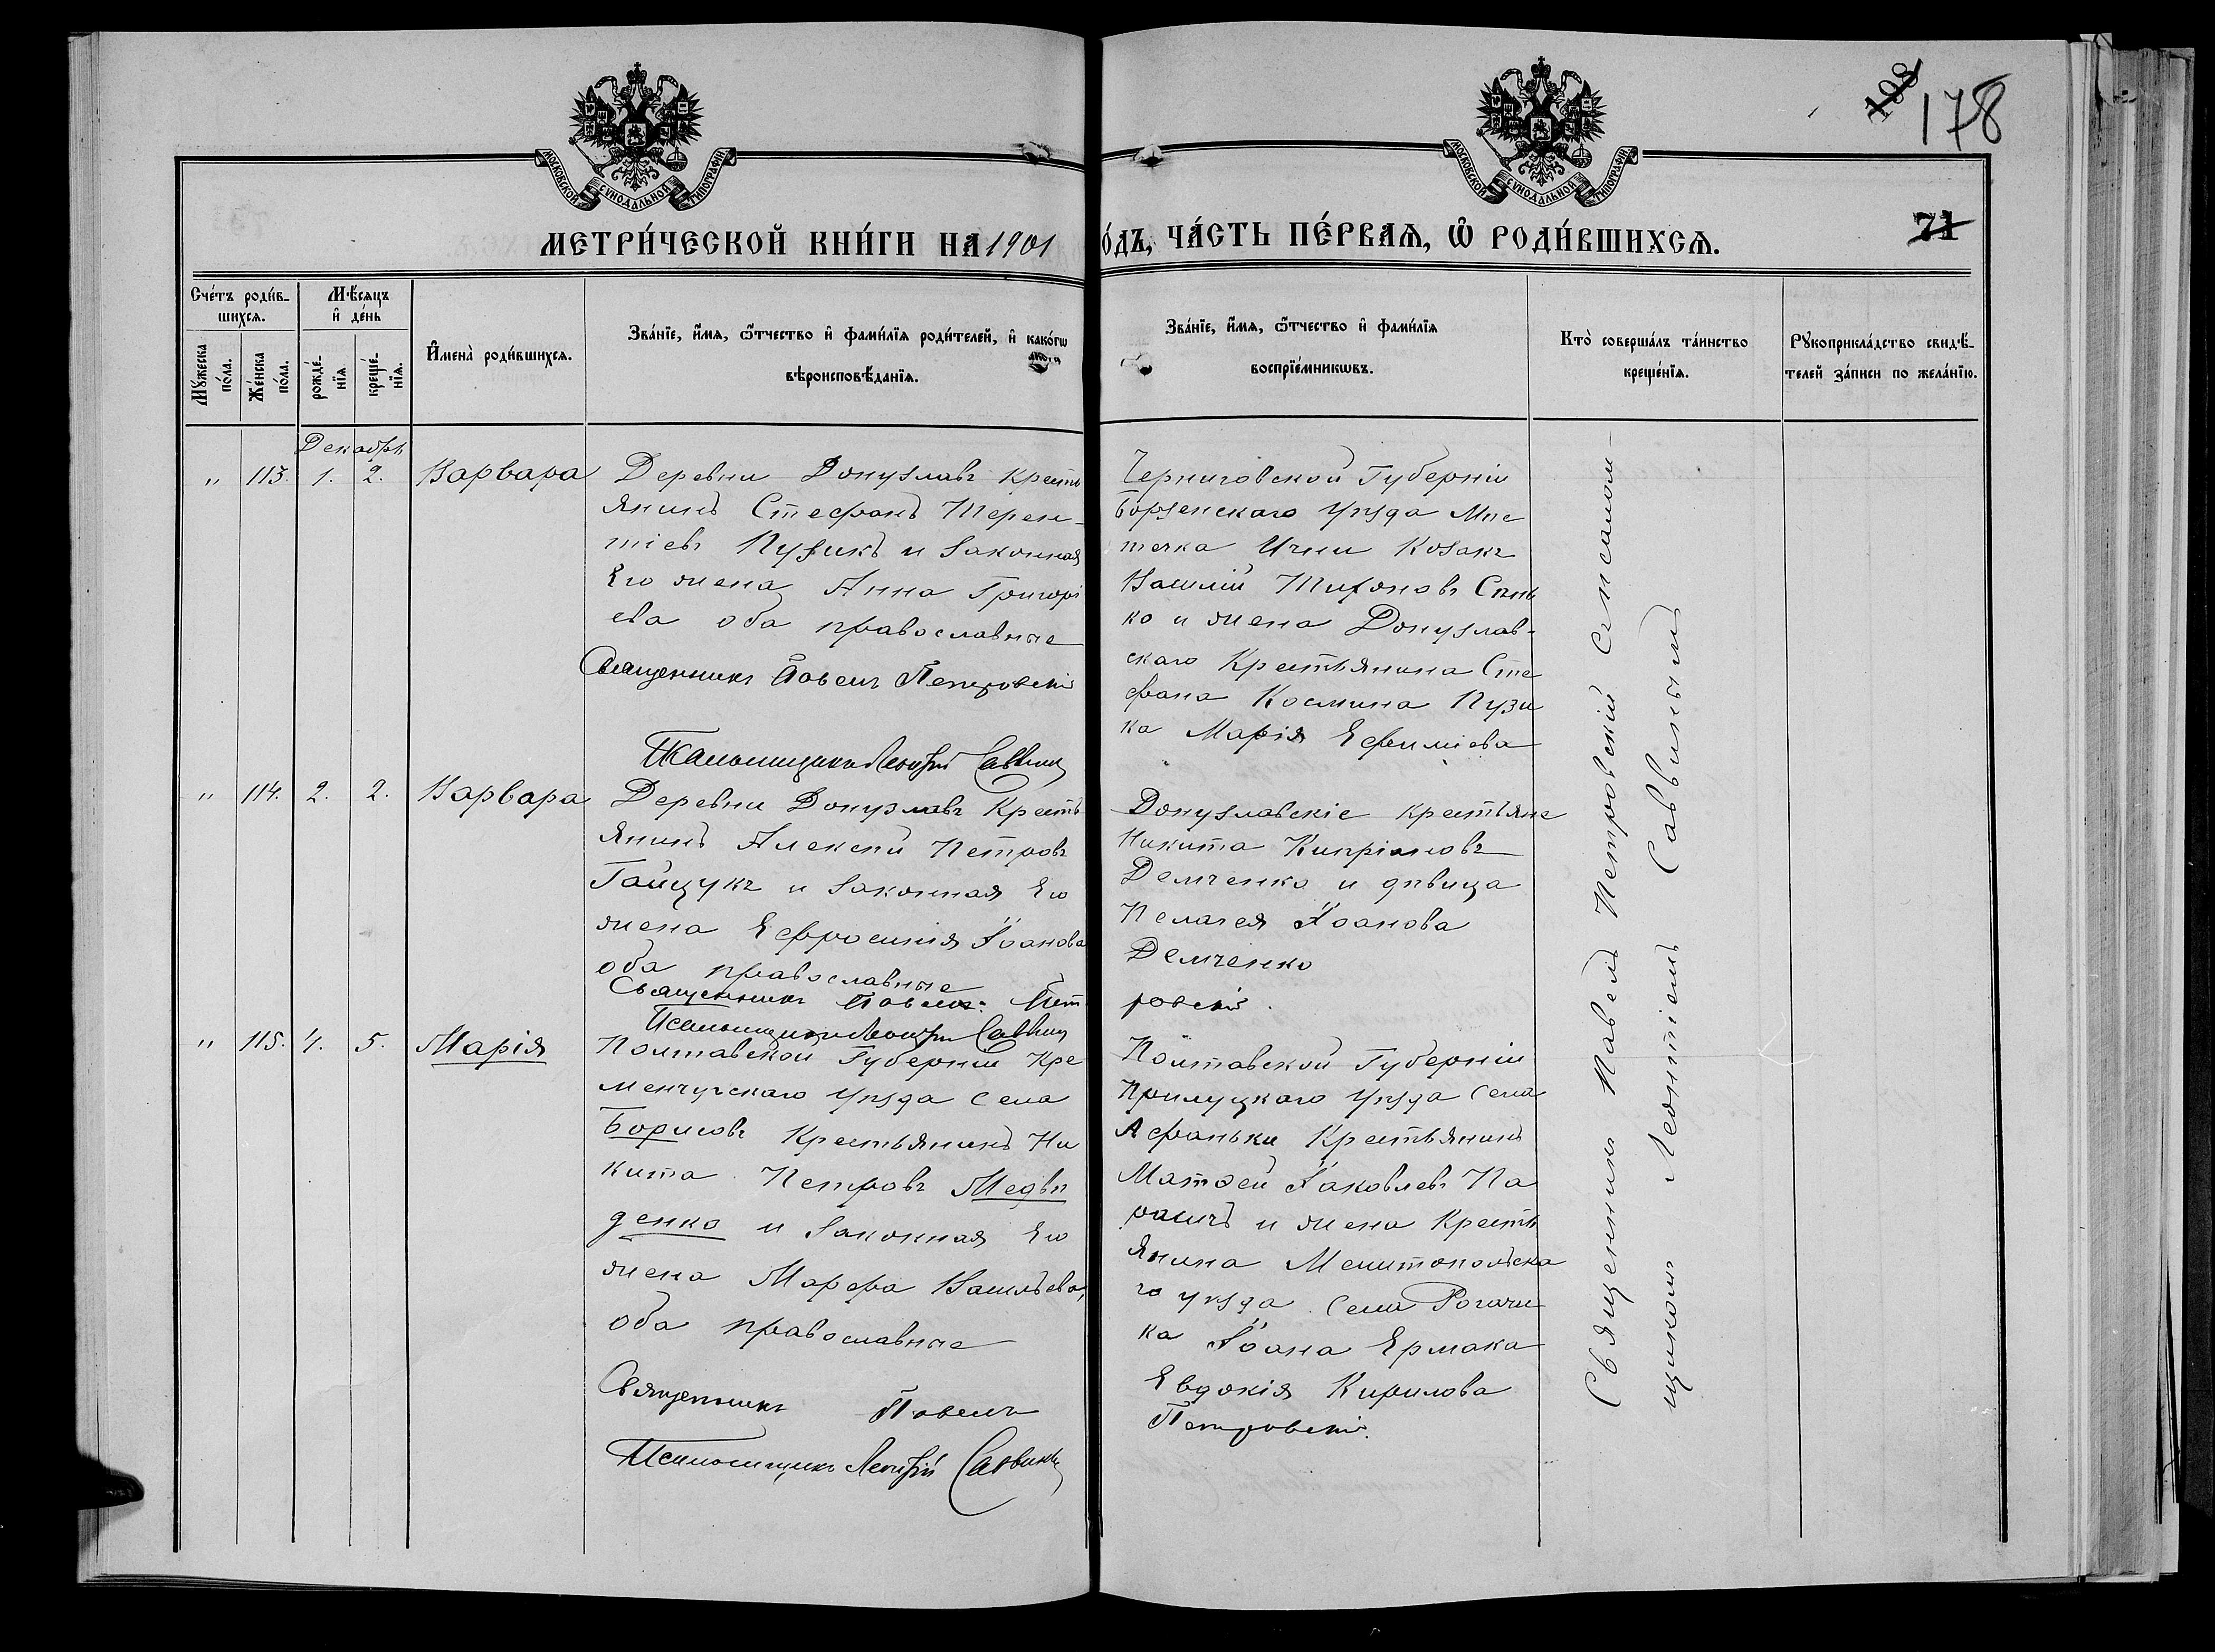 178
МОСКОВСКОЙ СѴНОДАЛЬНОЙ ТИПОГРАФІИ
МОСКОВСКОЙ СѴНОДАЛЬНОЙ ТИПОГРАФІИ
МЕТРИ́ЧЕСКОЙ КНИ́ГИ НА 1901
О́ДЪ, ЧА́СТЬ ПЕ́РВАЯ, Ѡ РОДИ́ВШИХСЯ.
71
Сче́тъ роди́в-
шихся.
Мꙋ́жеска
по́ла.
Же́нска
по́ла.
Мѣ́сяцъ
и҆ де́нь
рожде́-
нїя
креще́-
нїя.
И҆мена̀ роди́вшихся.
Зва́нїе, и҆́мя, ѻ҆́тчество и҆ фами́лїя роди́телей, и҆ како́гѡ
вѣроисповѣ́данїя.
Зва́нїе, и҆́мя, ѻ҆́тчество и҆ фами́лїя
воспрїе́мникѡвъ.
Кто̀ соверша́лъ та́инство
креще́нїя.
Рꙋкоприкла́дство свидѣ́-
телей за́писи по жела́нїю.
Декабрь
„ 113. 1. 2. Варвара
Деревни Донузлавъ Кресть
янинъ Стефанъ Терен-
тіевъ Пузикъ и законная
Его жена Анна Григорі
ева оба православные
Священникъ Павелъ Петровскій
Псаломщикъ Леонтій Саввинъ
Черниговской Губерніи
Борзенскаго Уѣзда Мѣс
течка Ични Козакъ
Василій Тихоновъ Сень
ко и жена Донузлав-
скаго Крестьянина Сте
фана Космина Пузи
ка Марія Ефиміева
„ 114. 2. 2. Варвара
Деревни Донузлавъ Кресть
янинъ Алексѣй Петровъ
Гайцукъ и законная Его
жена Ефросинія Іоанова
оба православные
Священникъ Павелъ Пет
Псаломщикъ Леонтій Саввинъ
Донузлавскіе крестьяне
Никита Кипріановъ
Демченко и дѣвица
Пелагея Іоанова
Демченко
ровскій.
„ 115. 4. 5. Марія
Полтавской Губерніи Кре
менчугскаго Уѣзда Села
Борисовъ Крестьянинъ Ни
кита Петровъ Медвѣ
денко и законная Его
жена Марфа Васильева,
оба православные
Священникъ Павелъ
Псаломщикъ Леонтій Саввинъ
Полтавской Губерніи
Прилуцкаго Уѣзда Села
Афаньки Крестьянинъ
Матѳей Іаковлевъ Па
рашъ и жена Кресть
янина Мелитопольска
го уѣзда Села Рогачи
ка Іоана Ермака
Евдокія Кирилова
Петровскій.
Священникъ Павелъ Петровскій съ псалом-
щикомъ Леонтіемъ Саввинымъ